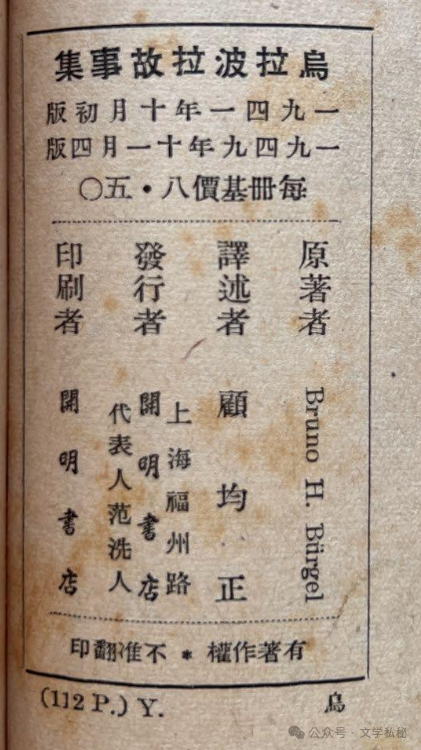 烏拉波拉故事集
一九四一年十月初版
一九四九年十一月四版
每冊基價八·五〇
原著者 Bruno H. Bürgel
譯述者 顧均正
發行者 上海福州路 開明書店 代表人范洗人
印刷者 開明書店
有著作權*不准翻印
(112 P.) Y. 烏
公众号·文学私秘